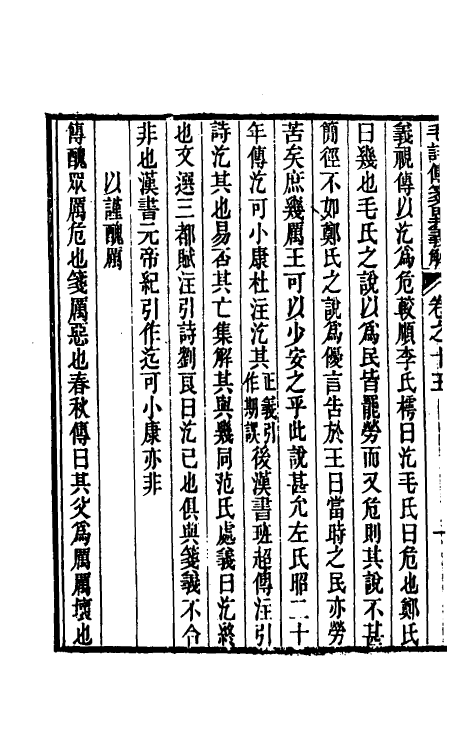 毛詩傳箋異義解 卷之十五
義視傳以汔為危較順李氏樗曰汔毛氏曰危也鄭氏
曰幾也毛氏之說以為民皆罷勞而又危則其說不甚
簡徑不如鄭氏之說為優言告於王曰當時之民亦勞
苦矣庶幾厲王可以少安之乎此說甚允左氏昭二十
年傳汔可小康杜注汔其正義引作期誤後漢書班超傳注引
詩汔其也易否其亡集解其與幾同范氏處義曰汔終
也文選三都賦注引詩劉良曰汔已也俱與箋義不合
非也漢書元帝紀引作迄可小康亦非
以謹醜厲
傳醜眾厲危也箋厲惡也春秋傳曰其父為厲厲壞也